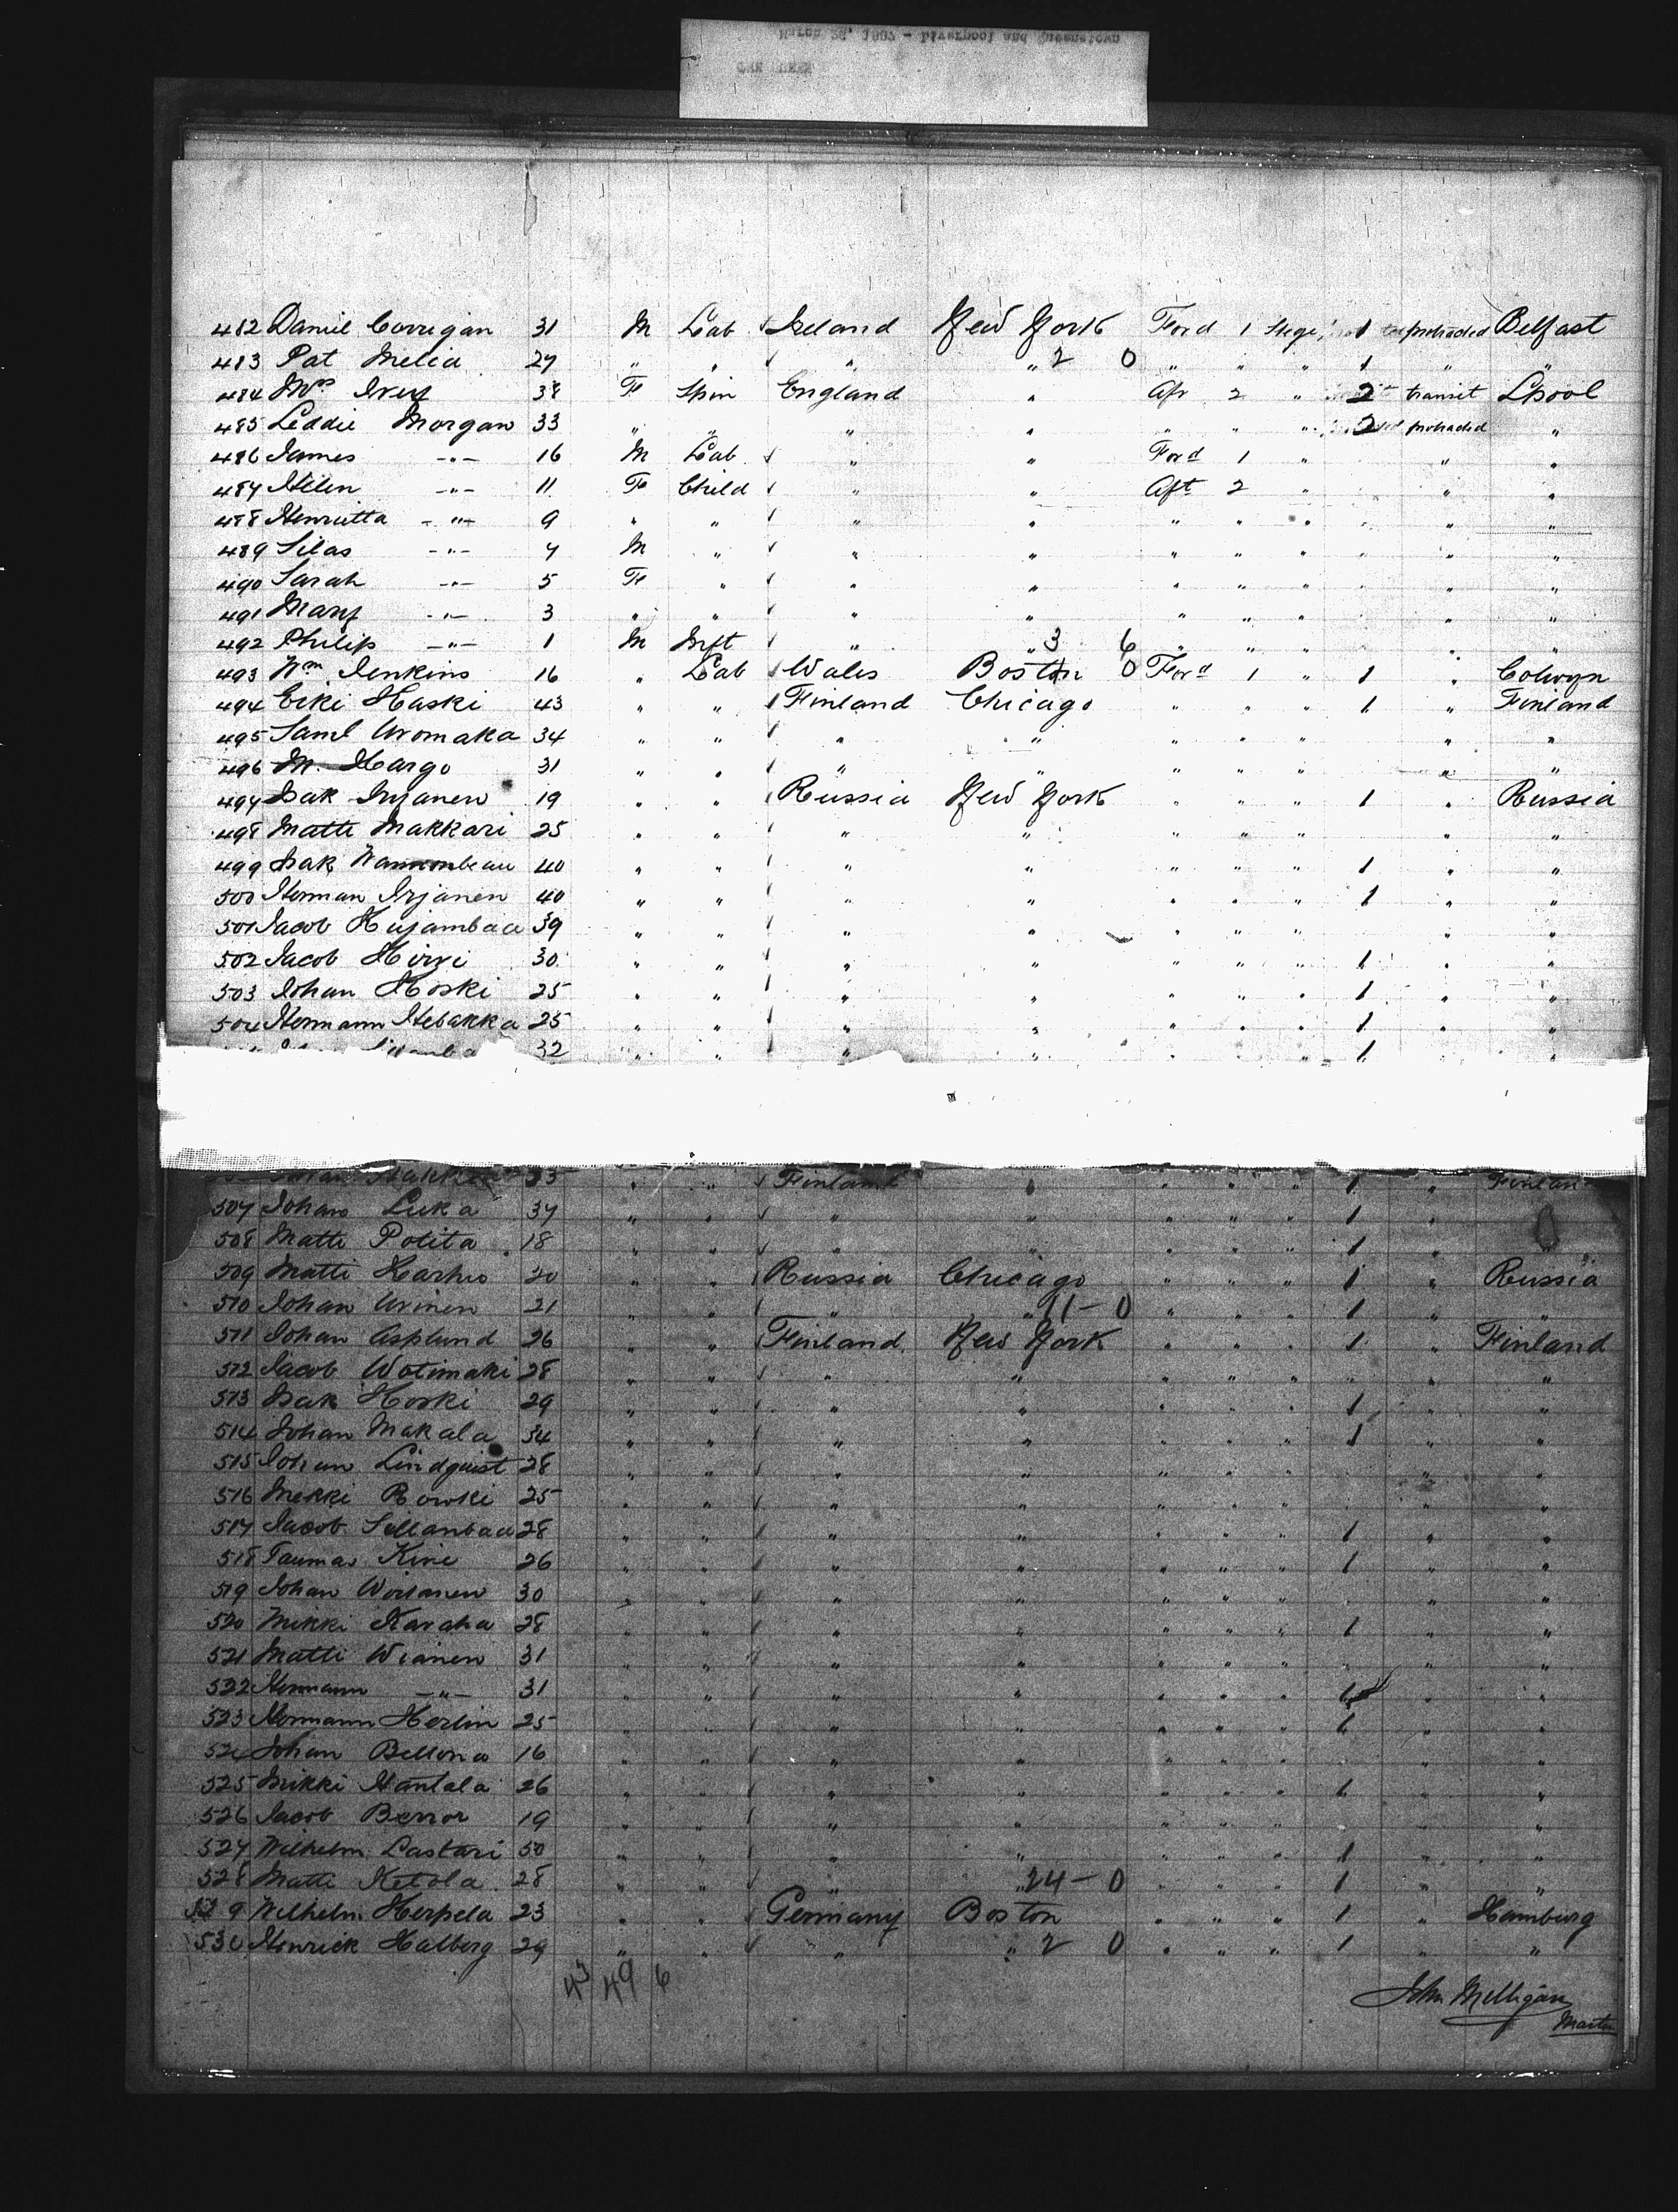 March 28, 1892 - Liverpool and Queenstown
482 Daniel Corrigan 31 M Lab Ireland New York Ford 1 Stge 1 protracted Belfast
483 Pat Melia 27 " " " " 2 0 " " " 1 " "
484 Mrs Ivey 38 F Spin England " Aft 2 " 2 transit Lpool
485 Leddie Morgan 33 " " " " " " " 2 protracted "
486 James -"- 16 M Lab " " Ford 1 " " "
487 Helen -"- 11 F Child " " Aft 2 " " "
488 Henrietta -"- 9 " " " " " " " " "
489 Silas -"- 7 M " " " " " " " "
490 Sarah -"- 5 F " " " " " " " "
491 Mary -"- 3 " " " " " " " " "
492 Philip -"- 1 M Inft " " 3 6 " " " " "
493 Wm Jenkins 16 " Lab Wales Boston 0 Ford 1 " 1 " Colwyn
494 Erki Haski 43 " " Finland Chicago " " " 1 " Finland
495 Saml Wromaka 34 " " " " " " " " "
496 M. Hargo 31 " " " " " " " " "
497 Isak Irjanen 19 " " Russia New York " " " 1 " Russia
498 Matti Makkari 25 " " " " " " " " "
499 Isak 40 " " " " " " " 1 " "
500 Herman Irjanen 40 " " " " " " " 1 " "
501 Jacob Hujambaa 39 " " " " " " " " "
502 Jacob Hirvi 30 " " " " " " " 1 " "
503 Johan Hoski 25 " " " " " " " 1 " "
504 Hermann Hebakka 25 " " " " " " " 1 " "
32 " " " " " " " 1 " "
33 " " Finland " " " " 1 " Finland
507 Johan Luka 37 " " " " " " " 1 "
508 Matti Potita 18 " " " " " " " 1 " "
509 Matti Karhu 20 " " Russia Chicago " " " 1 " Russia
510 Johan Wrinen 21 " " " " 11-0 " " " 1 " "
511 Johan Asplund 26 " " Finland New York " " " 1 " Finland
512 Jacob Wotimaki 28 " " " " " " " " " "
513 Isak Hoski 29 " " " " " " " 1 " "
514 Johan Makala 34 " " " " " " " 1 " "
515 Johan Lindquist 28 " " " " " " " " "
516 Mekki Rowki 25 " " " " " " " " "
517 Jacob Sillanbaa 28 " " " " " " " 1 " "
518 Taumas Kivi 26 " " " " " " " 1 " "
519 Johan Woisanen 30 " " " " " " " " "
520 Mikki Karaha 28 " " " " " " " 1 " "
521 Matti Wianen 31 " " " " " " " " "
522 Hermann -"- 31 " " " " " " " 1 " "
523 Hermann Herlin 25 " " " " " " " 1 " "
524 Johan Bellona 16 " " " " " " " " "
525 Mikki Hantala 26 " " " " " " " 1 " "
526 Jacob Berror 19 " " " " " " " " "
527 Wilhelm Lastari 50 " " " " " " " 1 " "
528 Matti Ketola 28 " " " " 24-0 " " " 1 " "
529 Wilhelm Herpela 23 " " Germany Boston " " " 1 " Hamburg
530 Henrick Halberg 29 " " " " 2 0 " " " 1 " "
43 49 6
John Milligan
Master